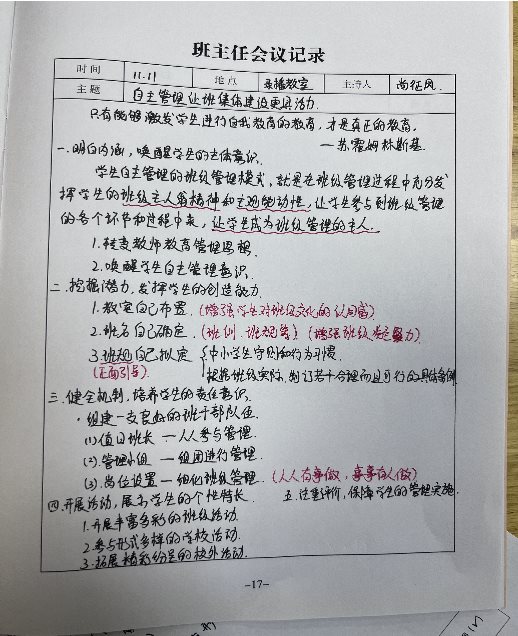 班主任会议记录
时间 11.11 地点 录播教室 主持人 尚征风.
主题 自主管理让班集体建设更具活力.
只有能够激发学生进行自我教育的教育，才是真正的教育。
—苏霍姆林斯基.
一.明白内涵，唤醒学生的主体意识.
学生自主管理的班级管理模式，就是在班级管理过程中充分发
挥学生的班级主人翁精神和主观能动性，让学生参与到班级管理
的各个环节和过程中来，让学生成为班级管理的主人.
1.转变教师教育管理思想.
2.唤醒学生自主管理意识.
二.挖掘潜力，发挥学生的创造能力.
1.教室自己布置.(增强学生对班级文化的认同富)
2.班名自己确定.(班训、班规等)(增强班级凝聚力)
3.班规自己拟定 {中小学生守则和行为习惯.
(正面引导) 根据班级实际，制订若干合理而且可行的具体条例
三.健全机制，培养学生的责任意识.
·组建一支良好的班干部队伍.
(1)值日班长 — 人人参与管理.
(2)管理小组 — 组团进行管理.
(3)岗位设置 — 细化班级管理.(人人有事做，事事有人做)
四.开展活动，展示学生的个性特长. 五.注重评价，保障学生的管理实施.
1.开展丰富多彩的班级活动.
2.参与形式多样的学校活动.
3.拓展精彩纷呈的校外活动.
-17-